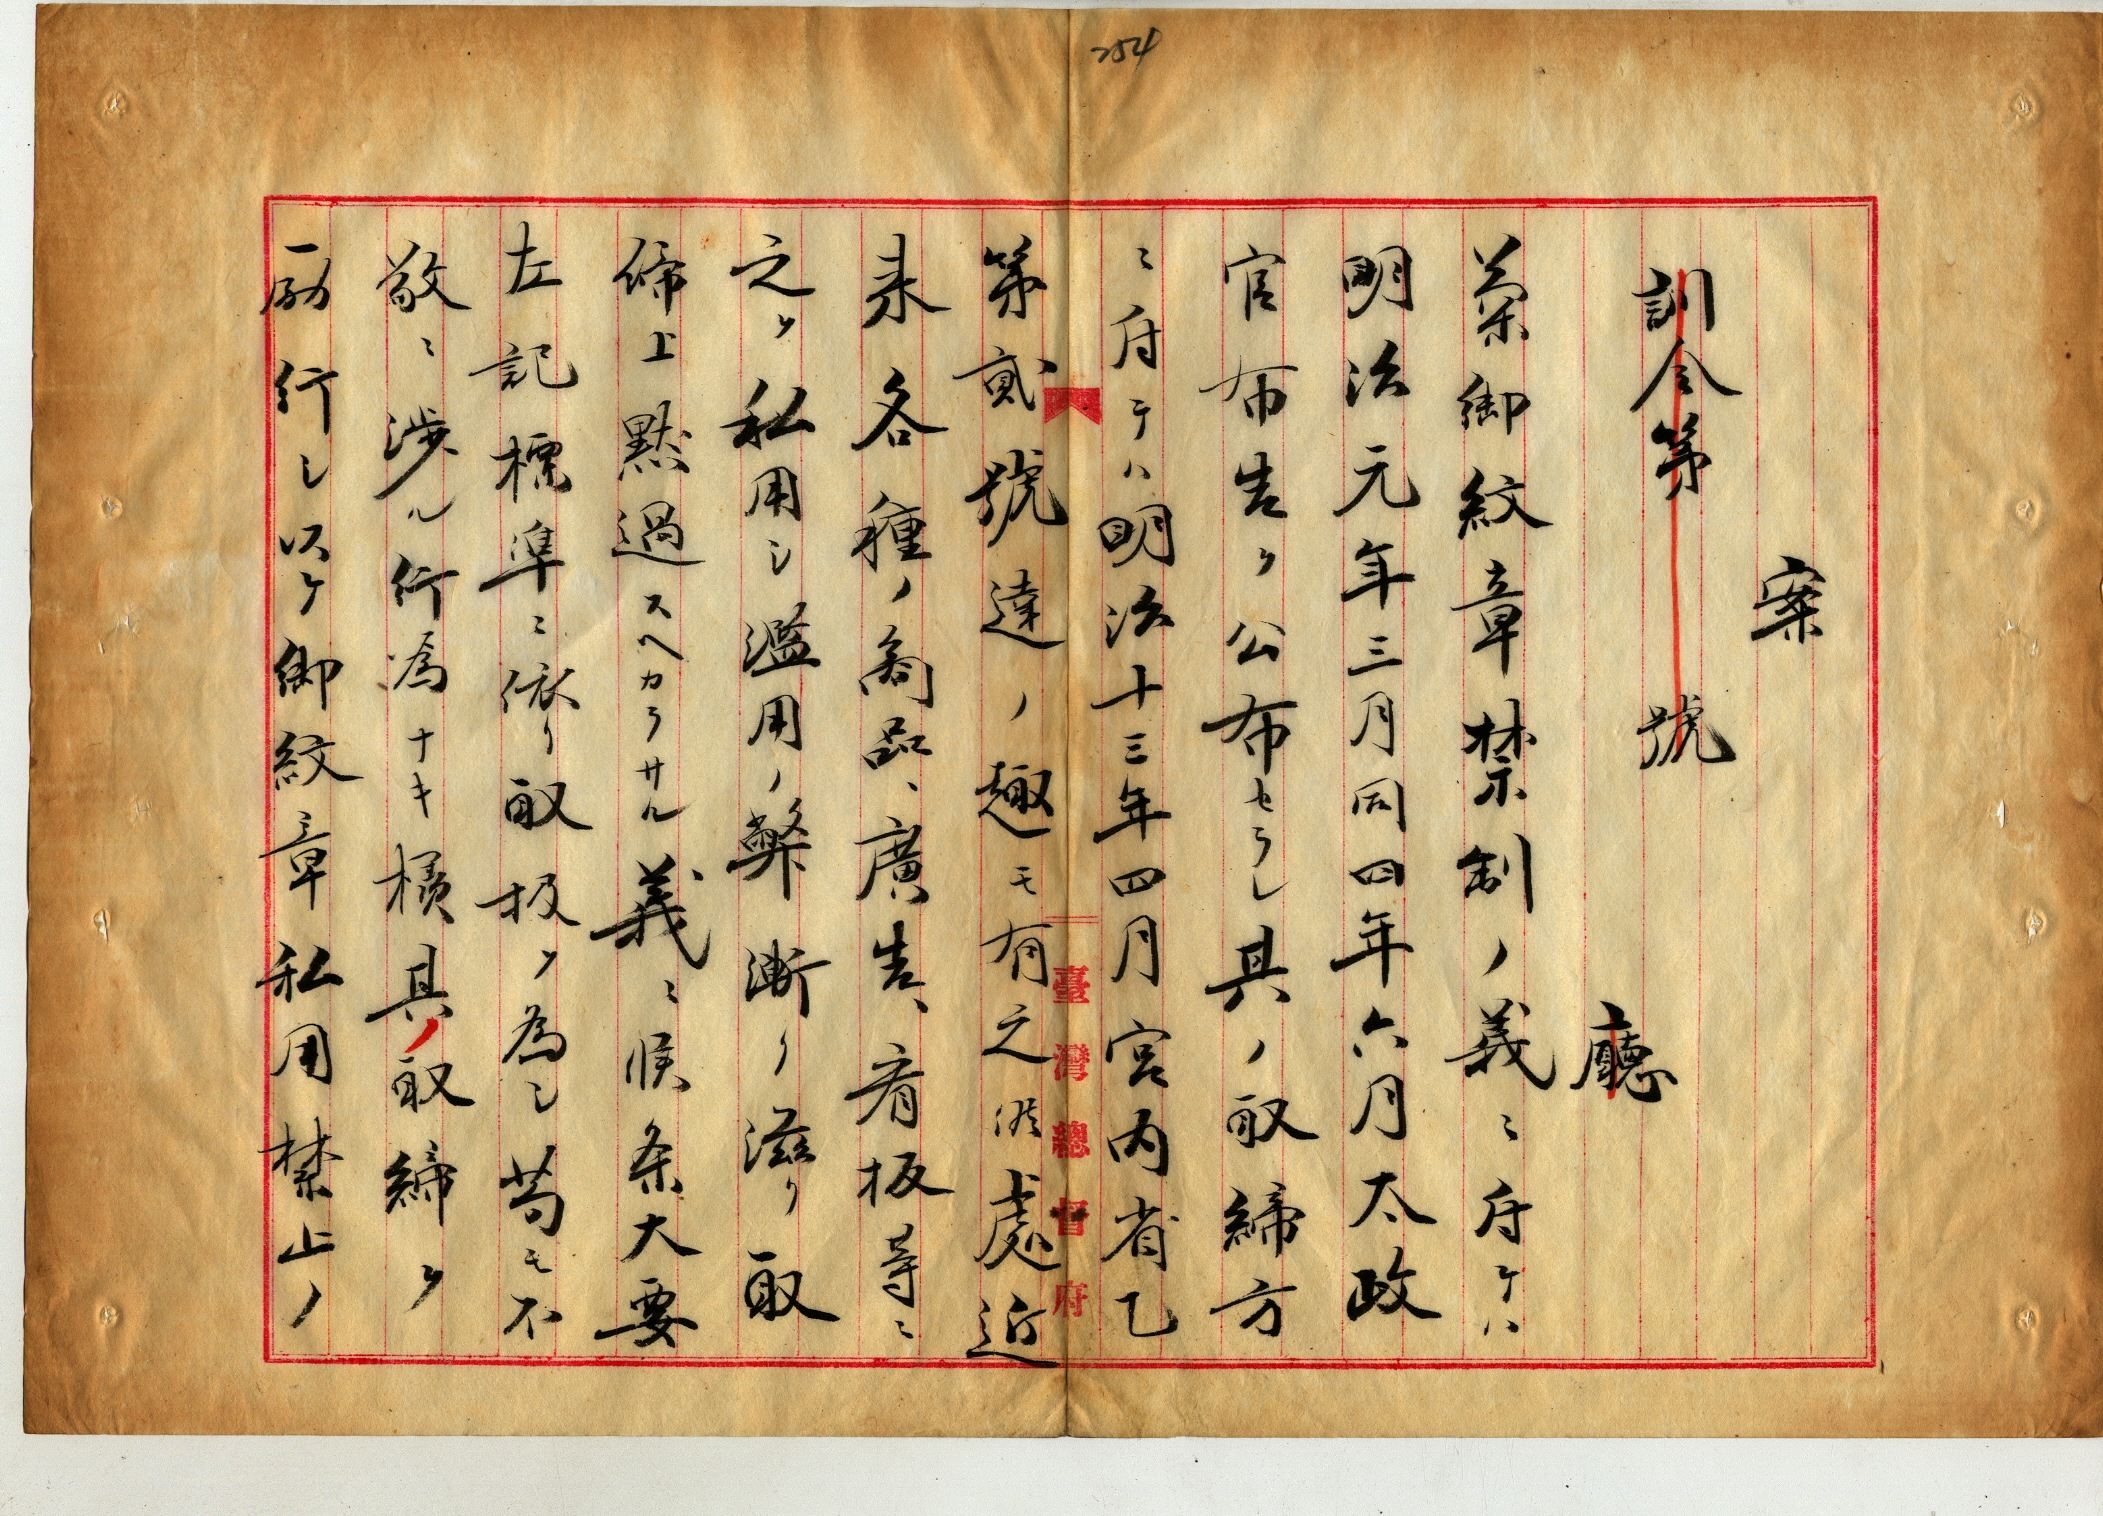 254
案
訓令第　　號
廳
菊御紋章禁制ノ義ニ付テハ
明治元年三月同四年六月太政
官布告ヲ公布セラレ其ノ取締方
ニ付テハ明治十三年四月宮内省乙
第貳號達ノ趣モ有之候處近
来各種ノ商品、廣告、看板等ニ
之ヲ私用シ濫用ノ弊漸ク滋ク取
締上黙過スヘカラサル義ニ候条大要
左記標準ニ依リ取扱ヲ為シ苟モ不
敬ニ渉ル行為ナキ様其ノ取締ヲ
励行シ以テ御紋章私用禁止ノ
臺灣總督府